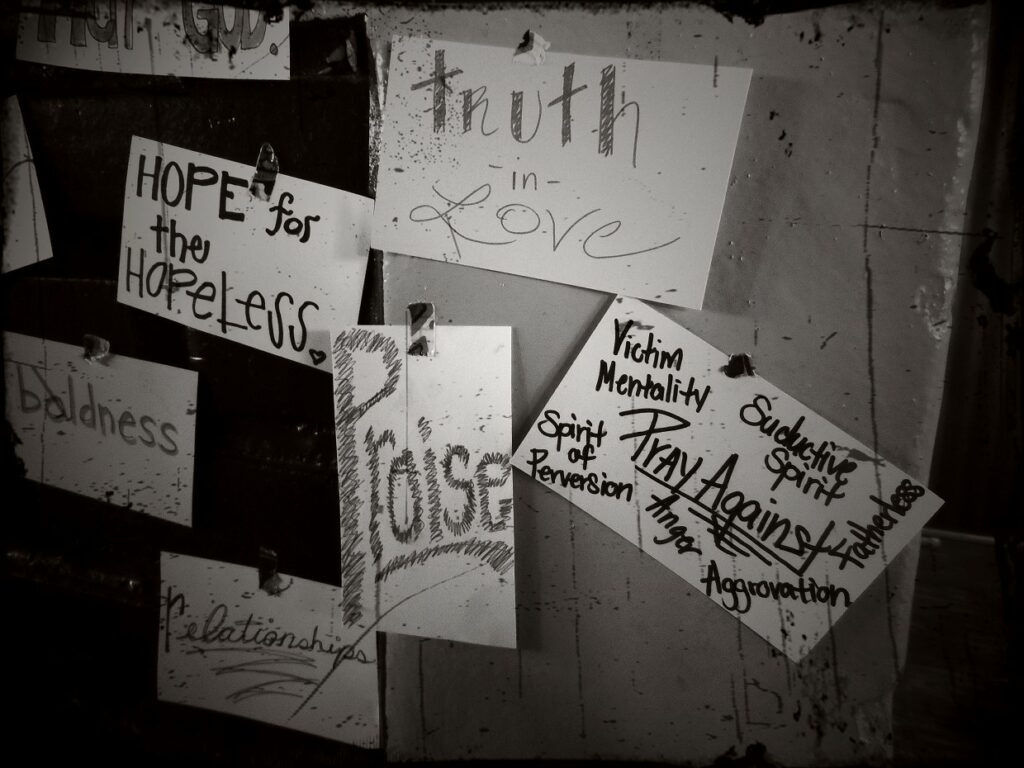 GOD.
truth
-in-
Love
HOPE for
the
HOPELESS.
boldness
Praise
relationships
Victim
Mentality
Suductive
Spirit
Spirit
of
Perversion
Pray Against
Fatherless
Anger
Aggrovation